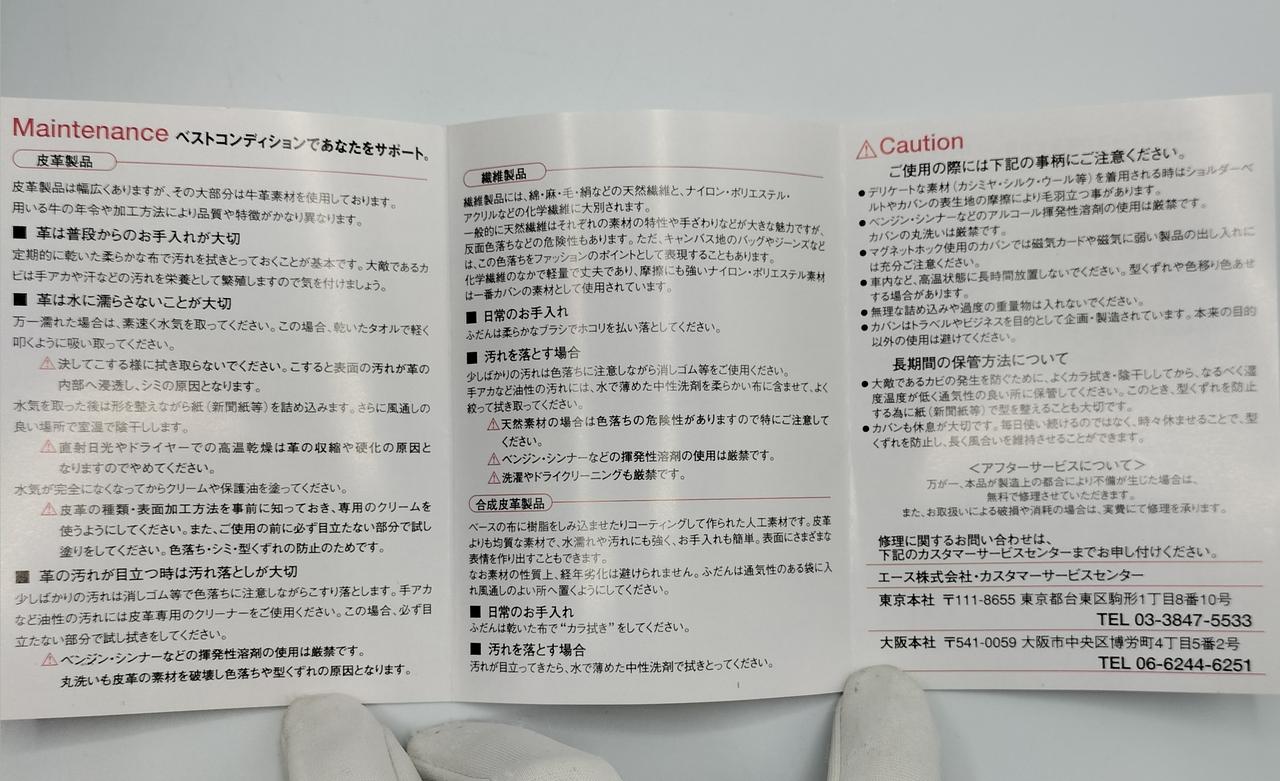 Maintenance ベストコンディションであなたをサポート。
皮革製品
皮革製品は幅広くありますが、その大部分は牛革素材を使用しております。
用いる牛の年令や加工方法により品質や特徴がかなり異なります。
■ 革は普段からのお手入れが大切
定期的に乾いた柔らかな布で汚れを拭きとっておくことが基本です。大敵であるカ
ビは手アカや汗などの汚れを栄養として繁殖しますので気を付けましょう。
■ 革は水に濡らさないことが大切
万一濡れた場合は、素速く水気を取ってください。この場合、乾いたタオルで軽く
叩くように吸い取ってください。
⚠決してこする様に拭き取らないでください。こすると表面の汚れが革の
内部へ浸透し、シミの原因となります。
水気を取った後は形を整えながら紙(新聞紙等)を詰め込みます。さらに風通しの
良い場所で室温で陰干しします。
⚠直射日光やドライヤーでの高温乾燥は革の収縮や硬化の原因と
なりますのでやめてください。
水気が完全になくなってからクリームや保護油を塗ってください。
⚠皮革の種類・表面加工方法を事前に知っておき、専用のクリームを
使うようにしてください。また、ご使用の前に必ず目立たない部分で試し
塗りをしてください。色落ち・シミ・型くずれの防止のためです。
■ 革の汚れが目立つ時は汚れ落としが大切
少しばかりの汚れは消しゴム等で色落ちに注意しながらこすり落とします。手アカ
など油性の汚れには皮革専用のクリーナーをご使用ください。この場合、必ず目
立たない部分で試し拭きをしてください。
⚠ベンジン・シンナーなどの揮発性溶剤の使用は厳禁です。
丸洗いも皮革の素材を破壊し色落ちや型くずれの原因となります。
繊維製品
繊維製品には、綿・麻・毛・絹などの天然繊維と、ナイロン・ポリエステル・
アクリルなどの化学繊維に大別されます。
一般的に天然繊維はそれぞれの素材の特性や手ざわりなどが大きな魅力ですが、
反面色落ちなどの危険性もあります。ただ、キャンバス地のバッグやジーンズなど
は、この色落ちをファッションのポイントとして表現することもあります。
化学繊維のなかで軽量で丈夫であり、摩擦にも強いナイロン・ポリエステル素材
は一番カバンの素材として使用されています。
■ 日常のお手入れ
ふだんは柔らかなブラシでホコリを払い落としてください。
■ 汚れを落とす場合
少しばかりの汚れは色落ちに注意しながら消しゴム等をご使用ください。
手アカなど油性の汚れには、水で薄めた中性洗剤を柔らかい布に含ませて、よく
絞って拭き取ってください。
⚠天然素材の場合は色落ちの危険性がありますので特にご注意して
ください。
⚠ベンジン・シンナーなどの揮発性溶剤の使用は厳禁です。
⚠洗濯やドライクリーニングも厳禁です。
合成皮革製品
ベースの布に樹脂をしみ込ませたりコーティングして作られた人工素材です。皮革
よりも均質な素材で、水濡れや汚れにも強く、お手入れも簡単。表面にさまざまな
表情を作り出すこともできます。
なお素材の性質上、経年劣化は避けられません。ふだんは通気性のある袋に入
れ風通しのよい所へ置くようにしてください。
■ 日常のお手入れ
ふだんは乾いた布で“カラ拭き”をしてください。
■ 汚れを落とす場合
汚れが目立ってきたら、水で薄めた中性洗剤で拭きとってください。
⚠Caution
ご使用の際には下記の事柄にご注意ください。
●デリケートな素材(カシミヤ・シルク・ウール等)を着用される時はショルダーベ
ルトやカバンの表生地の摩擦により毛羽立つ事があります。
●ベンジン・シンナーなどのアルコール揮発性溶剤の使用は厳禁です。
カバンの丸洗いは厳禁です。
●マグネットホック使用のカバンでは磁気カードや磁気に弱い製品の出し入れに
は充分ご注意ください。
●車内など、高温状態に長時間放置しないでください。型くずれや色移り色あせ
する場合があります。
●無理な詰め込みや過度の重量物は入れないでください。
●カバンはトラベルやビジネスを目的として企画・製造されています。本来の目的
以外の使用は避けてください。
長期間の保管方法について
●大敵であるカビの発生を防ぐために、よくカラ拭き・陰干ししてから、なるべく湿
度温度が低く通気性の良い所に保管してください。このとき、型くずれを防止
する為に紙(新聞紙等)で型を整えることも大切です。
●カバンも休息が大切です。毎日使い続けるのではなく、時々休ませることで、型
くずれを防止し、長く風合いを維持させることができます。
＜アフターサービスについて＞
万が一、本品が製造上の都合により不備が生じた場合は、
無料で修理させていただきます。
また、お取扱いによる破損や消耗の場合は、実費にて修理を承ります。
修理に関するお問い合わせは、
下記のカスタマーサービスセンターまでお申し付けください。
エース株式会社・カスタマーサービスセンター
東京本社 〒111-8655 東京都台東区駒形1丁目8番10号
TEL 03-3847-5533
大阪本社 〒541-0059 大阪市中央区博労町4丁目5番2号
TEL 06-6244-6251